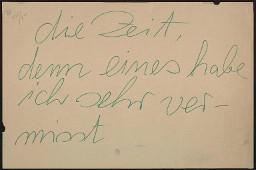 die Zeit,
denn eines habe
ich sehr ver-
misst